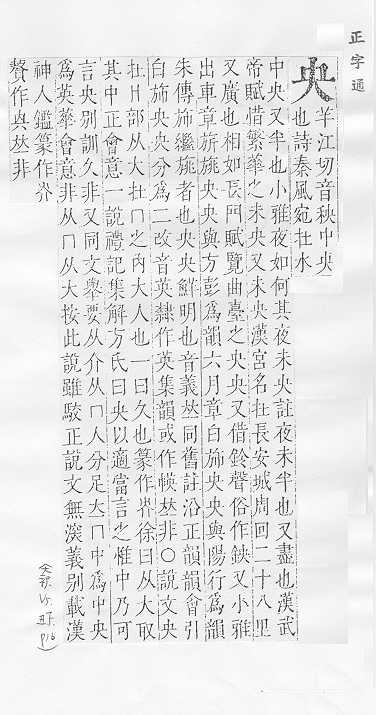 正字通
央
羊江切音秧中央
也詩秦風宛在水
中央又半也小雅夜如何其夜未央註夜未半也又盡也漢武
帝賦惜繁華之未央又未央漢宮名在長安城周回二十八里
又廣也相如長門賦覽曲臺之央央又借鈴聲俗作鉠又小雅
出車章旂旐央央與方彭爲韻六月章白斾央央與陽行爲韻
朱傳斾繼旐者也央央鮮明也音義𠀤同舊註沿正韻韻會引
白斾央央分爲二改音英隸作英集韻或作㡕𠀤非○說文央
在H部从大在冂之內大人也一曰久也篆作𡴆徐曰从大取
其中正會意一說禮記集解方氏曰央以適當言之惟中乃可
言央別訓久非又同文舉要从介从冂人分足大冂中爲中央
爲英華會意非从冂从大按此說雖駁正說文無深義別載漢
神人鑑篆作𡴆
贊作㒵𠀤非